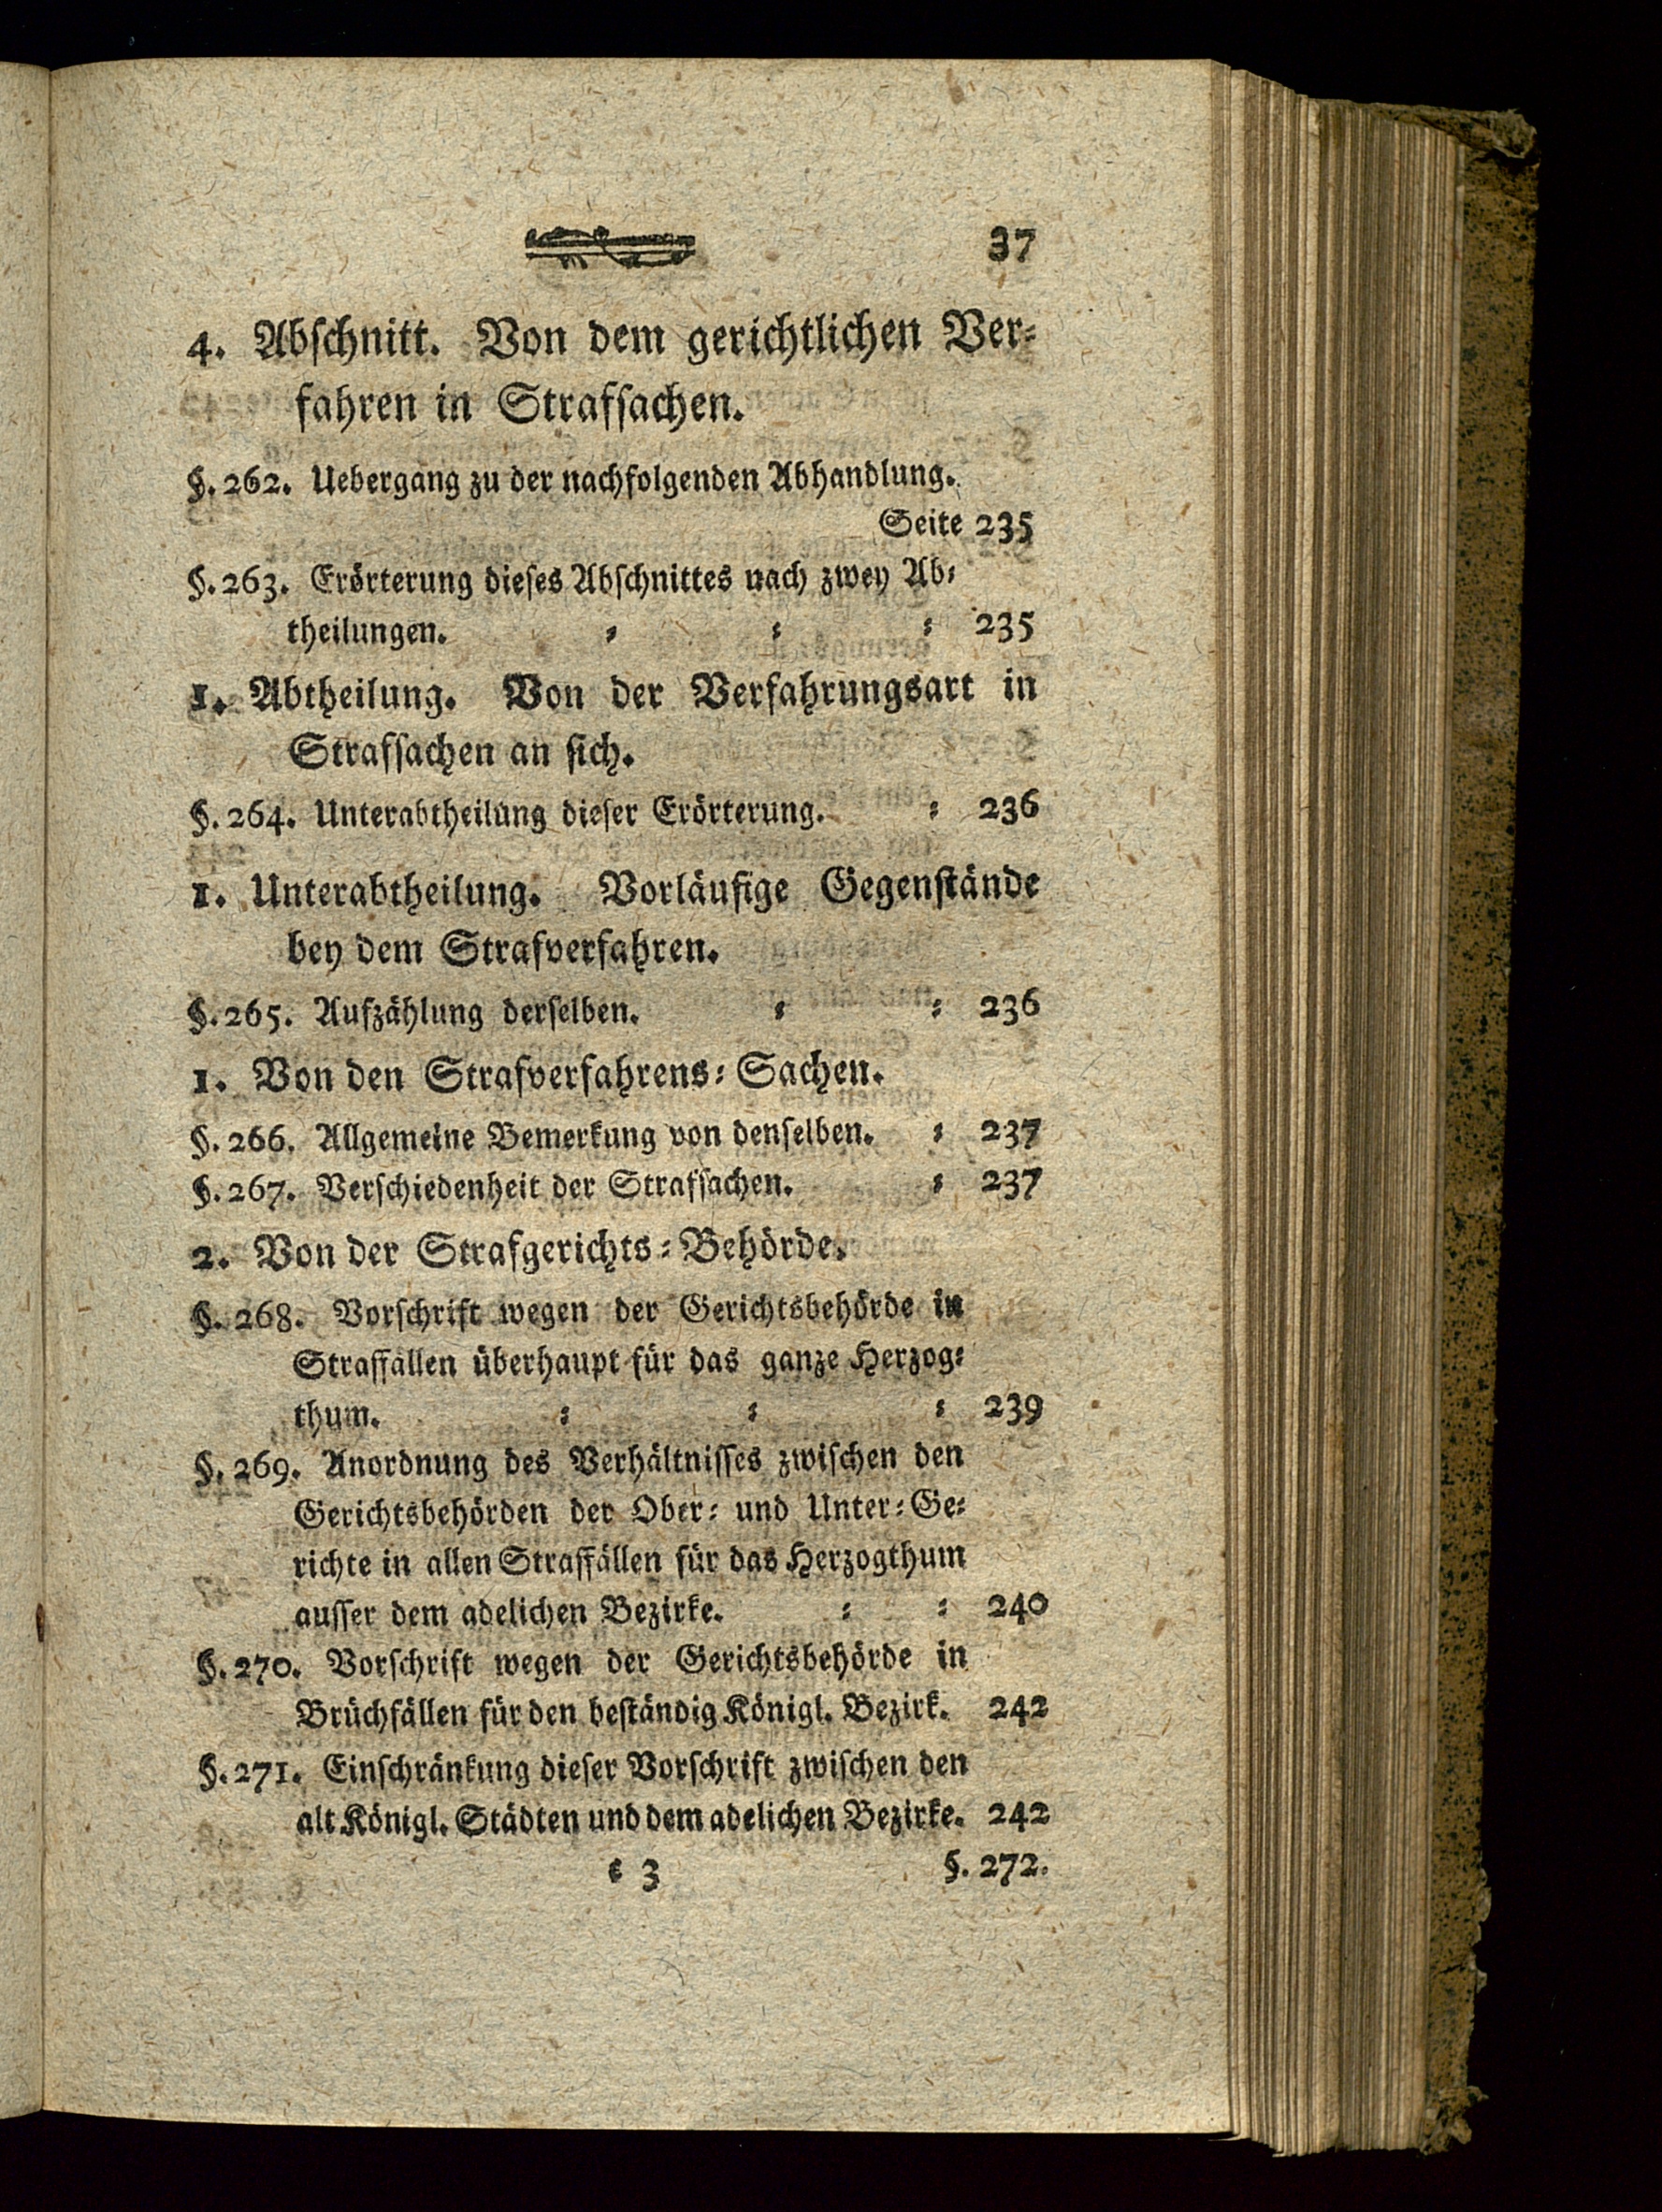 37
4. Abschnitt. Von dem gerichtlichen Ver-
fahren in Strafsachen.
§. 262. Uebergang zu der nachfolgenden Abhandlung.
Seite 235
§. 263. Erörterung dieses Abschnittes nach zwey Ab-
theilungen. = = = 235
1. Abtheilung. Von der Verfahrungsart in
Strafsachen an sich.
§. 264. Unterabtheilung dieser Erörterung. = 236
1. Unterabtheilung. Vorläufige Gegenstände
bey dem Strafverfahren.
§. 265. Aufzählung derselben. = = 236
1. Von den Strafverfahrens-Sachen.
§. 266. Allgemeine Bemerkung von denselben. = 237
§. 267. Verschiedenheit der Strafsachen. = 237
2. Von der Strafgerichts-Behörde.
§. 268. Vorschrift wegen der Gerichtsbehörde in
Straffällen überhaupt für das ganze Herzog-
thum. = = = 239
§. 269. Anordnung des Verhältnisses zwischen den
Gerichtsbehörden der Ober- und Unter-Ge-
richte in allen Straffällen für das Herzogthum
ausser dem adelichen Bezirke. = = 240
§. 270. Vorschrift wegen der Gerichtsbehörde in
Brüchfällen für den beständig Königl. Bezirk. 242
§. 271. Einschränkung dieser Vorschrift zwischen den
alt Königl. Städten und dem adelichen Bezirke. 242
c 3 §. 272.